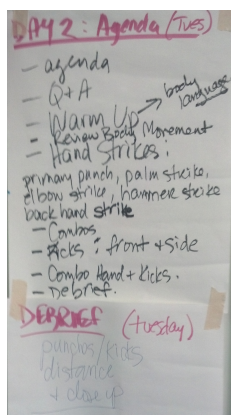 DAY 2: Agenda (Tues)
- agenda
- Q+A
- Warm Up → body language
- Review Body Movement
- Hand Strikes:
primary punch, palm strike,
elbow strike, hammer strike
back hand strike
- Combos
- Kicks: front + side
- Combo Hand + Kicks.
- Debrief.
DEBRIEF (tuesday)
punches/kicks
distance
+ close up